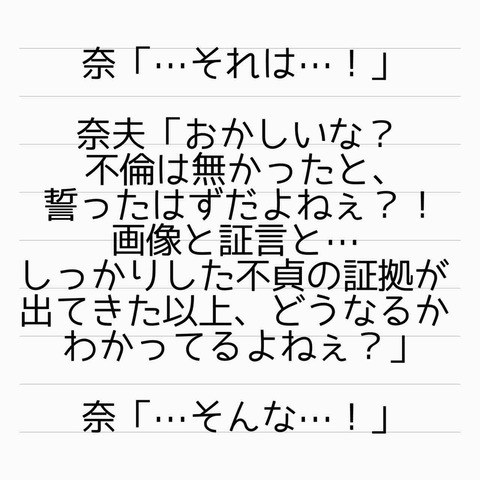 奈「…それは…！」
奈夫「おかしいな？
不倫は無かったと、
誓ったはずだよねぇ？！
画像と証言と…
しっかりした不貞の証拠が
出てきた以上、どうなるか
わかってるよねぇ？」
奈「…そんな…！」